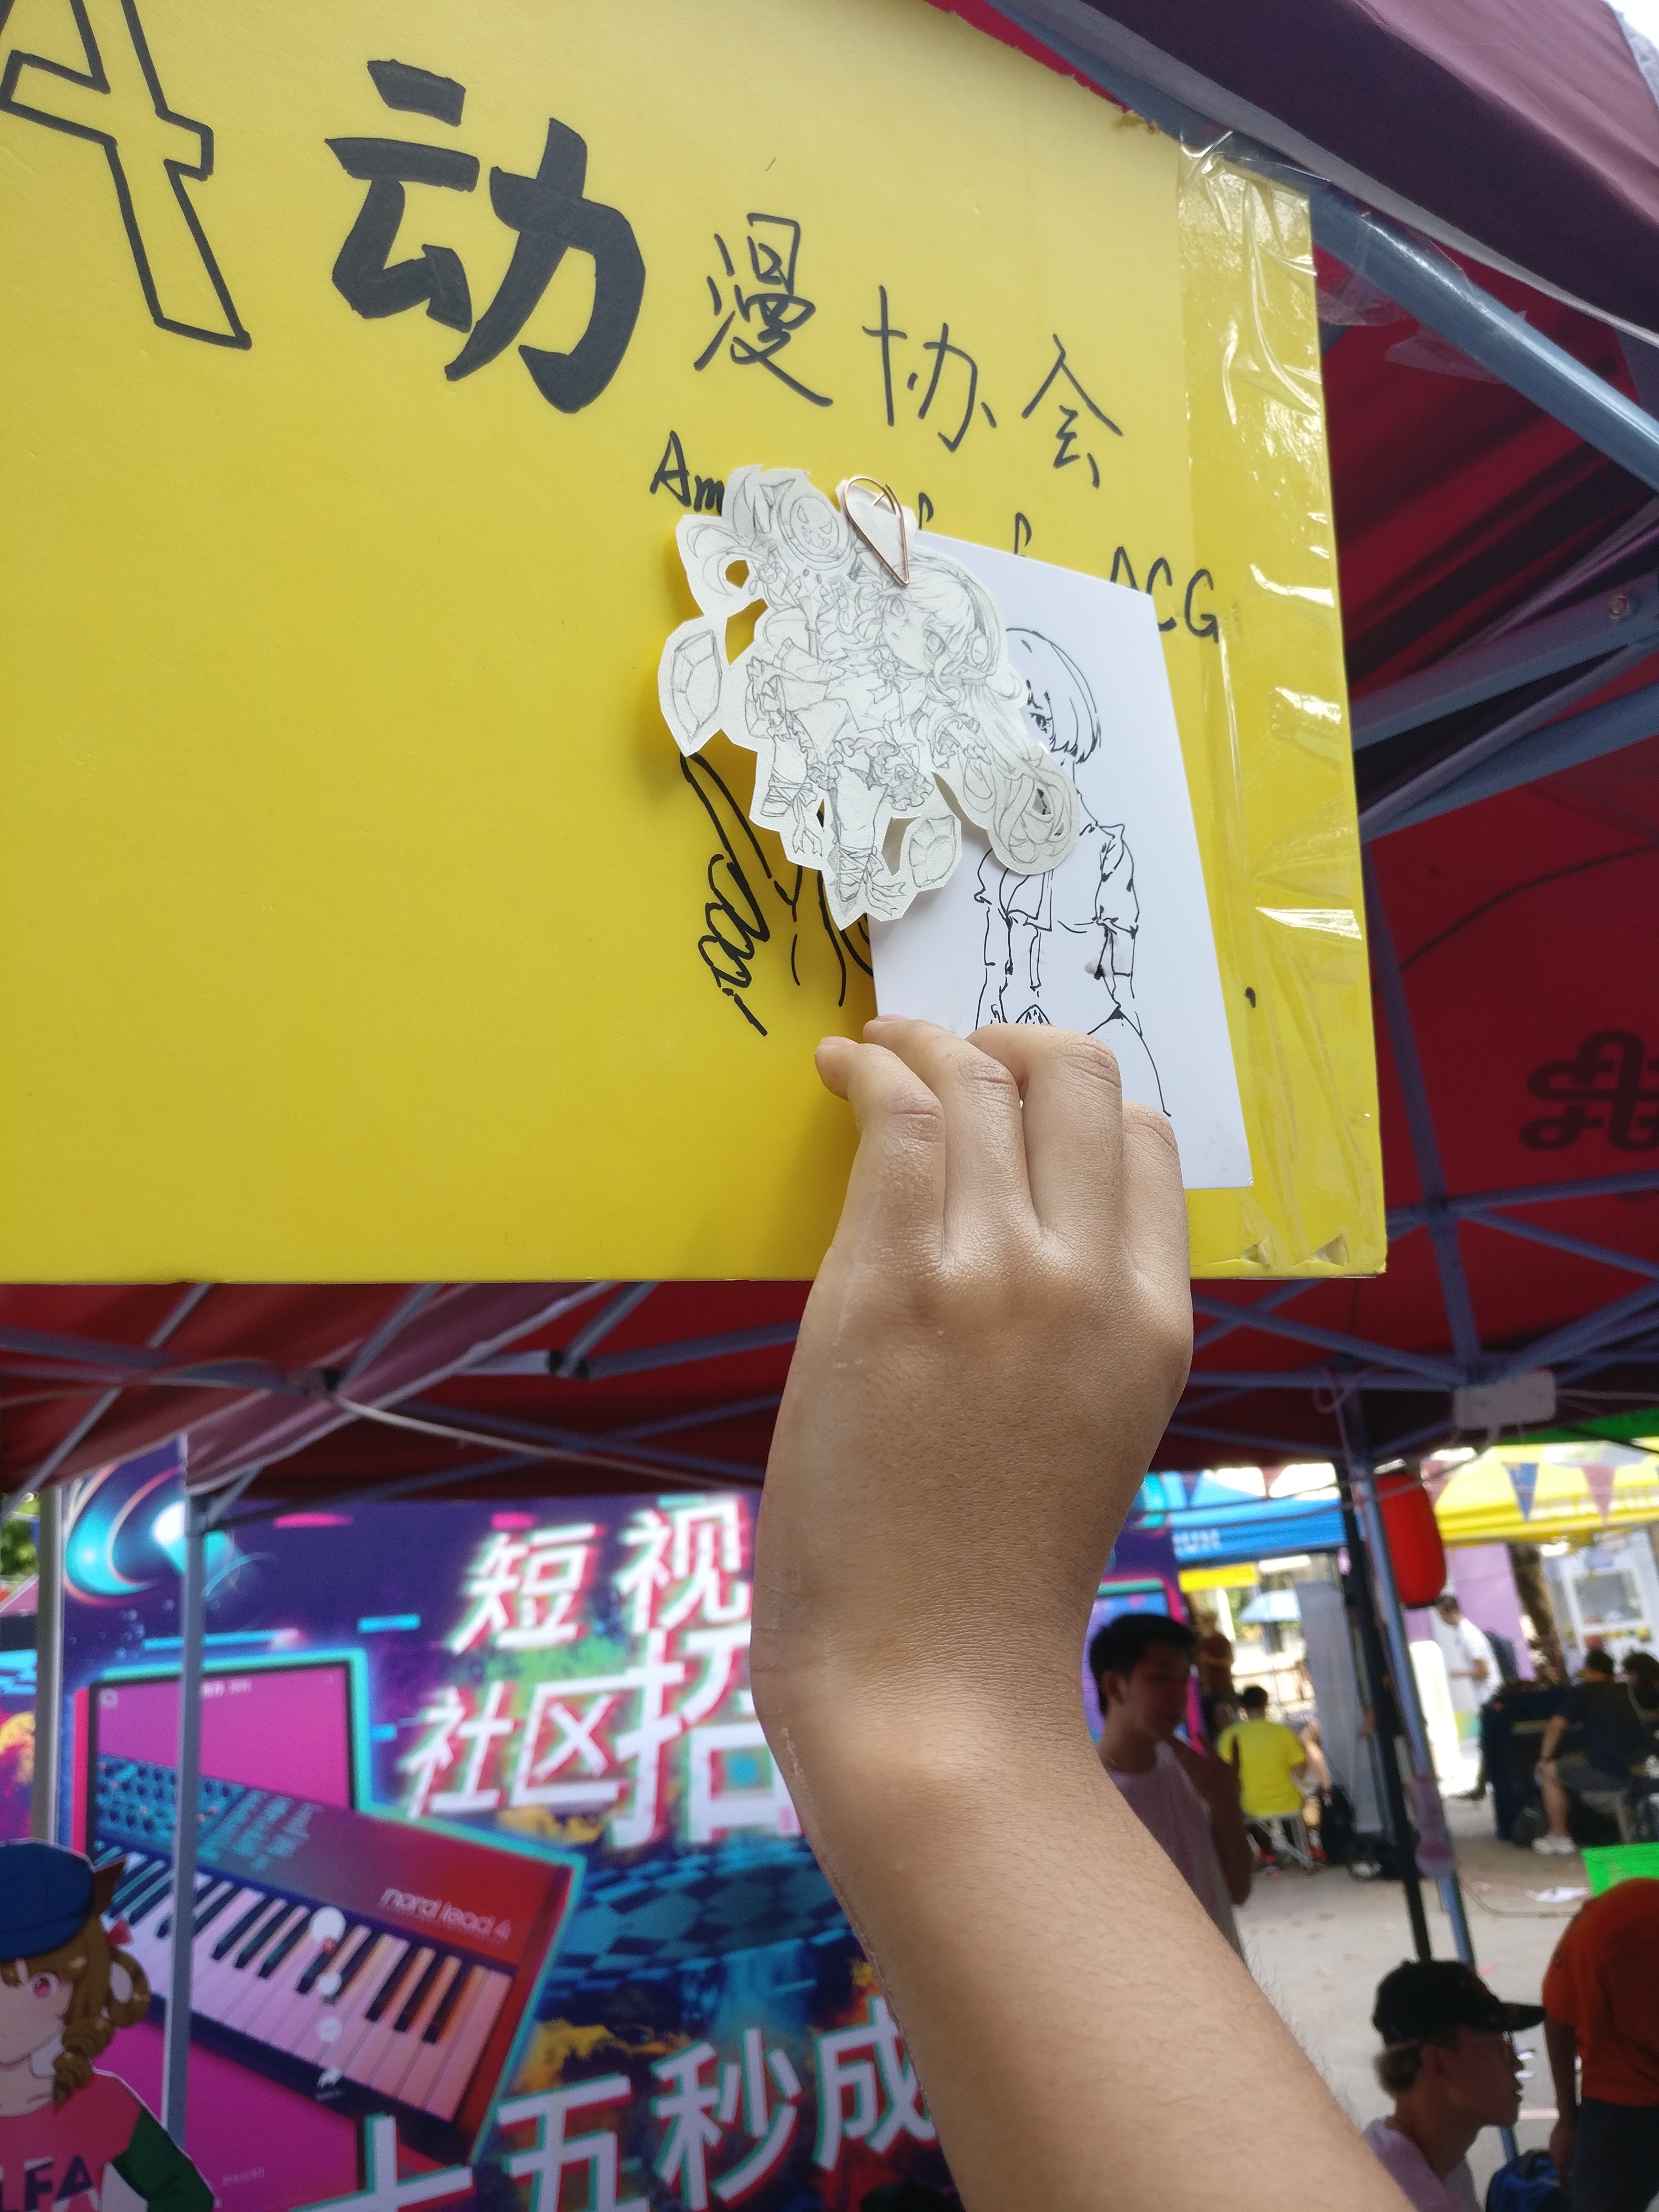 A 动漫协会
Am
ACG
短视
社区招
nord lead A1
十五秒成
LFA